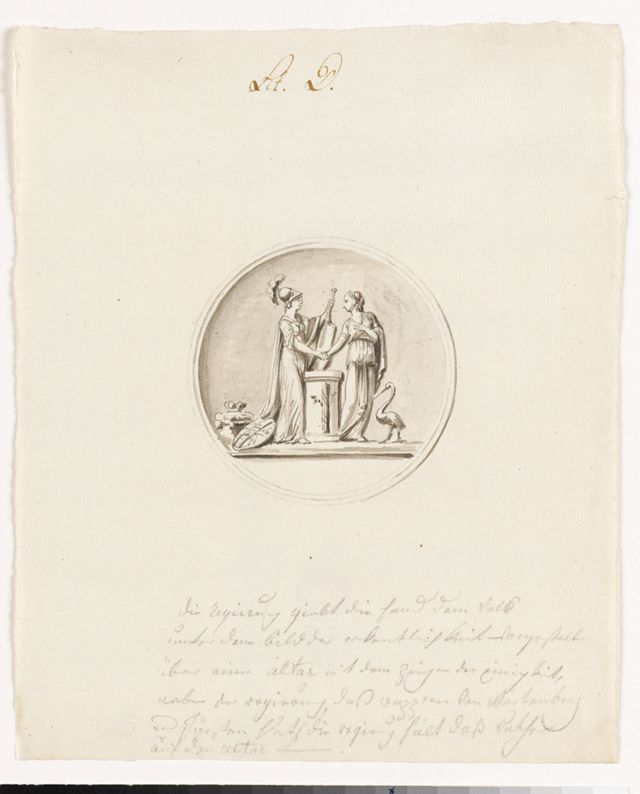 Lit. D.
die regierung giebt die hand dem Volk
unter dem bild der erkentlichkeit vorgestelt
über einen altar mit dem zeichen der einigkeit,
neben der regierung daß wappen von
und die regierung hält daß
auf den altar